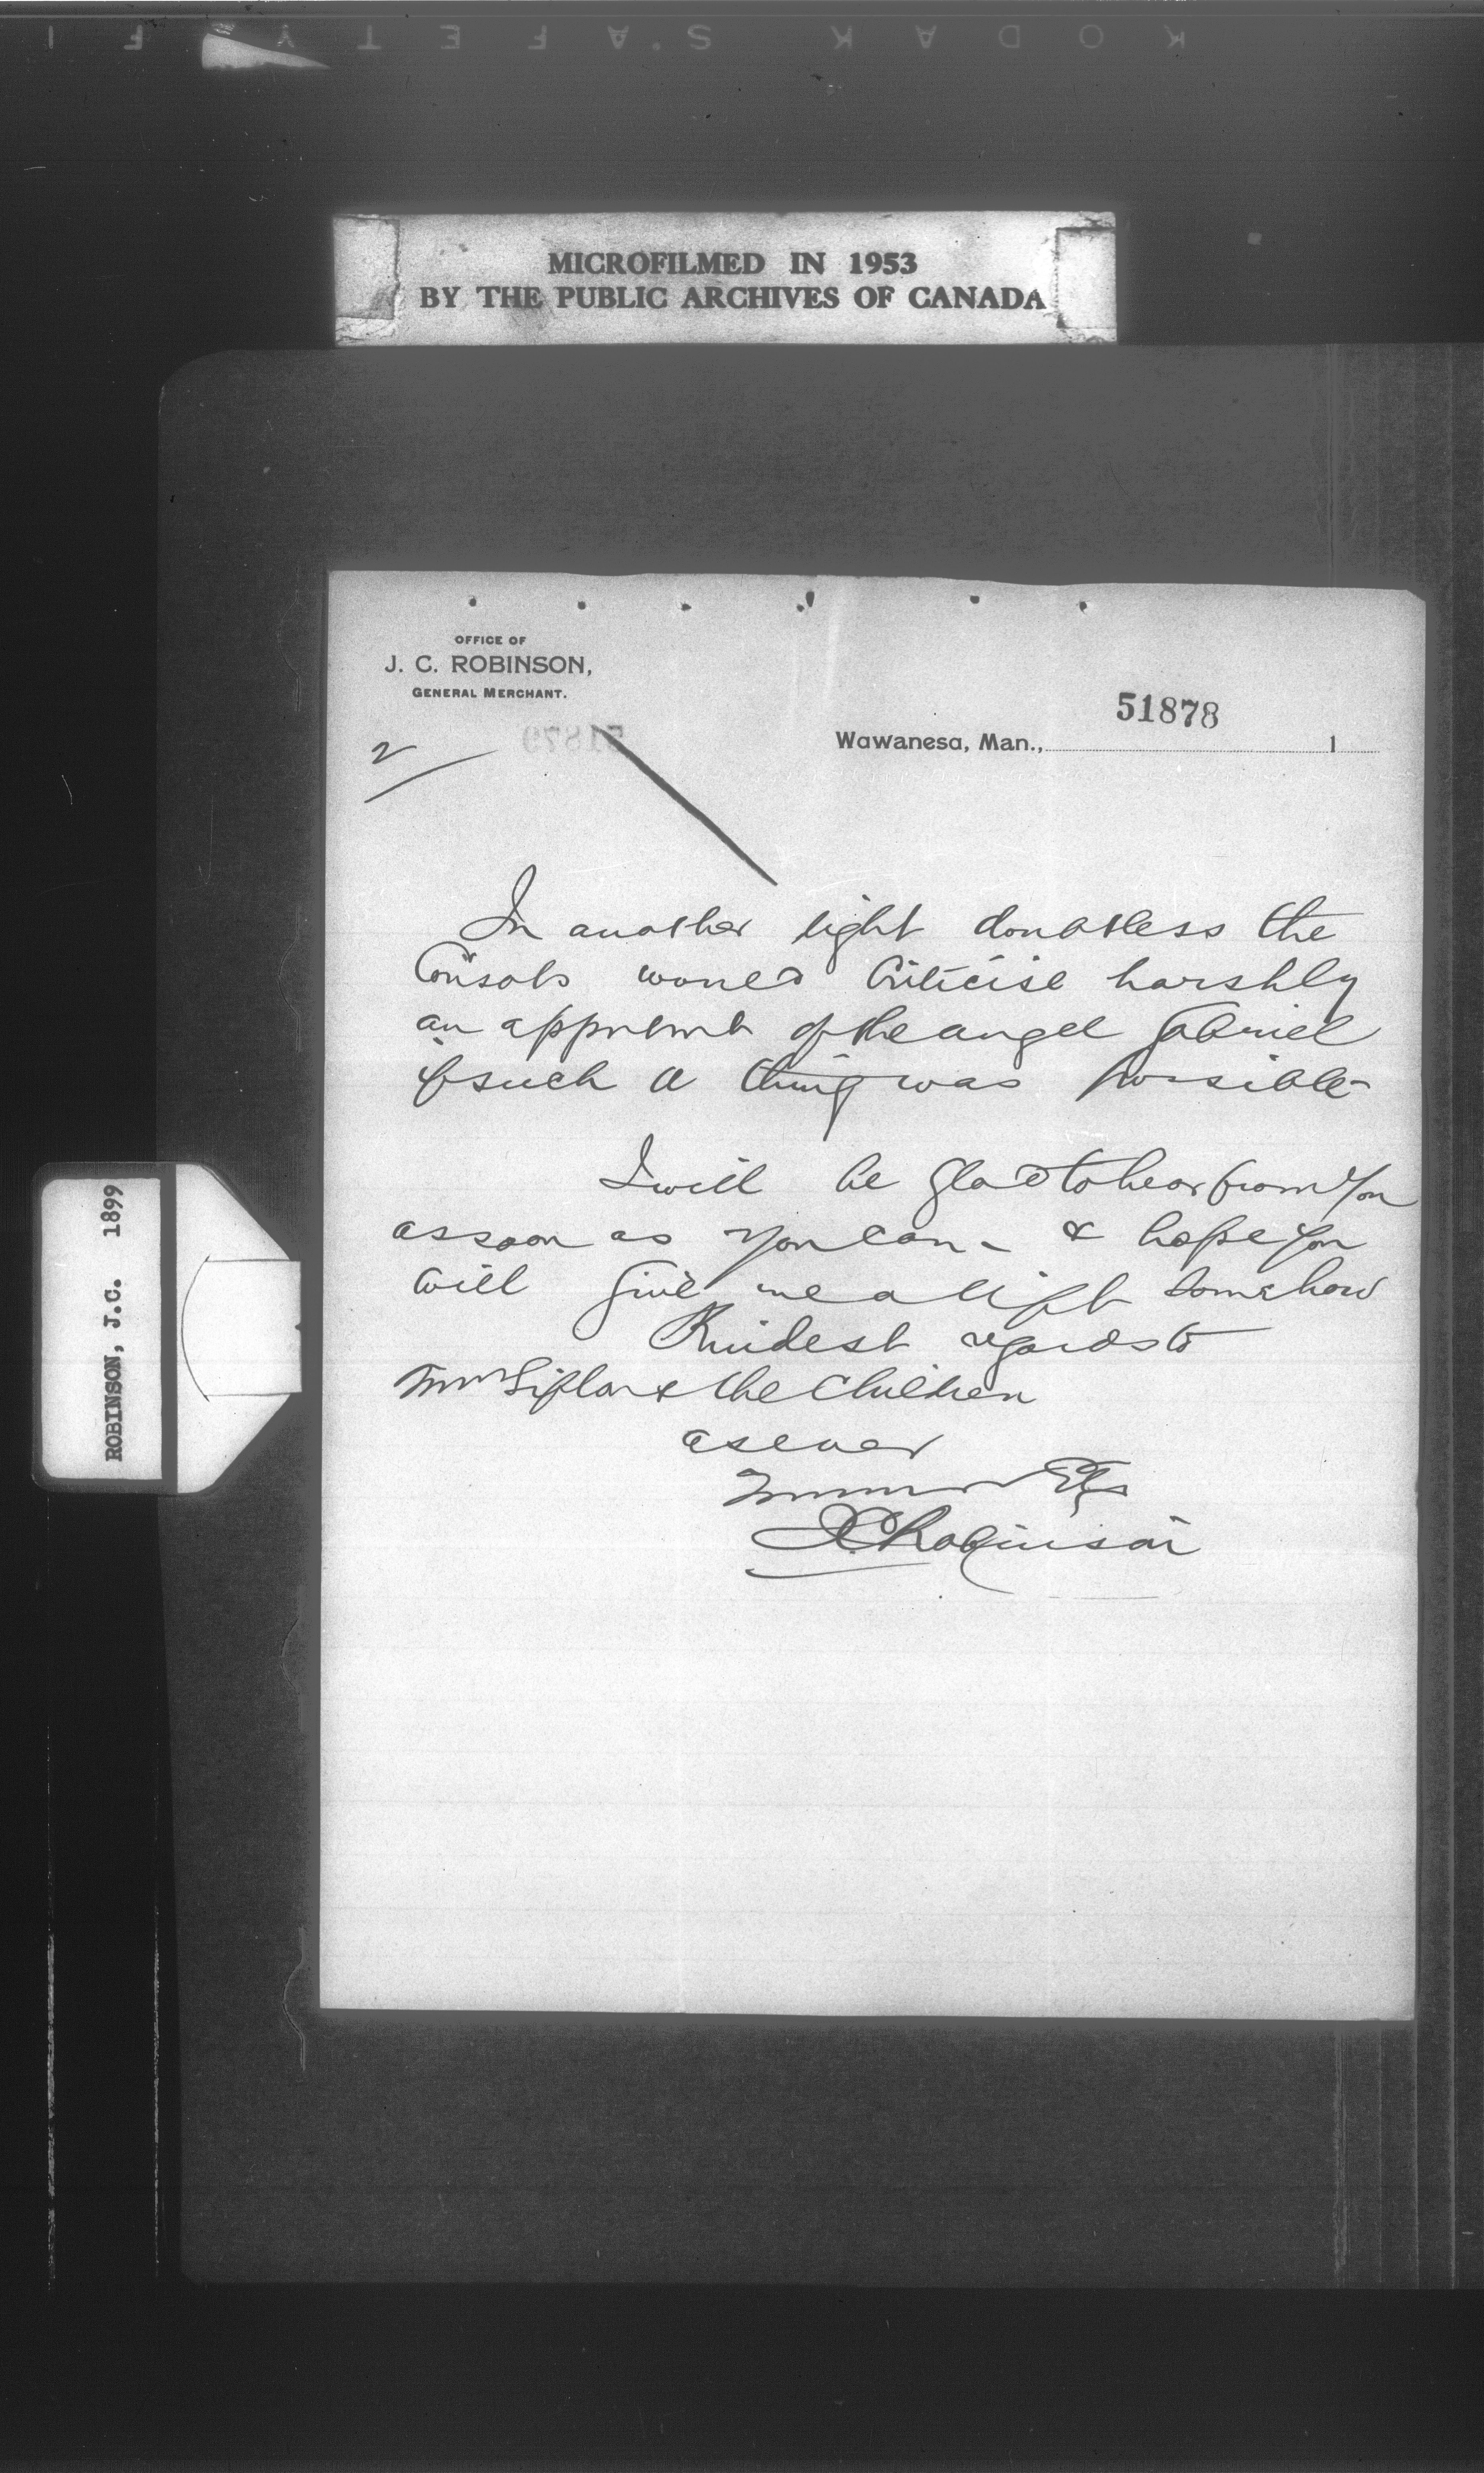 KODAK SAFETY F I
MICROFILMED IN 1953
BY THE PUBLIC ARCHIVES OF CANADA
OFFICE OF
J. C. ROBINSON,
GENERAL MERCHANT.
51878
51879
Wawanesa, Man., 1
2
In another light doubtless the
would criticise harshly
an of the angel Gabriel
if such a thing was possible-
I will be glad to hear from you
as soon as you can - & hope you
will give me a lift somehow
Kindest regards to
Mrs Sifton & the children
as ever
Etc
JC Robinson
ROBINSON, J.C. 1899